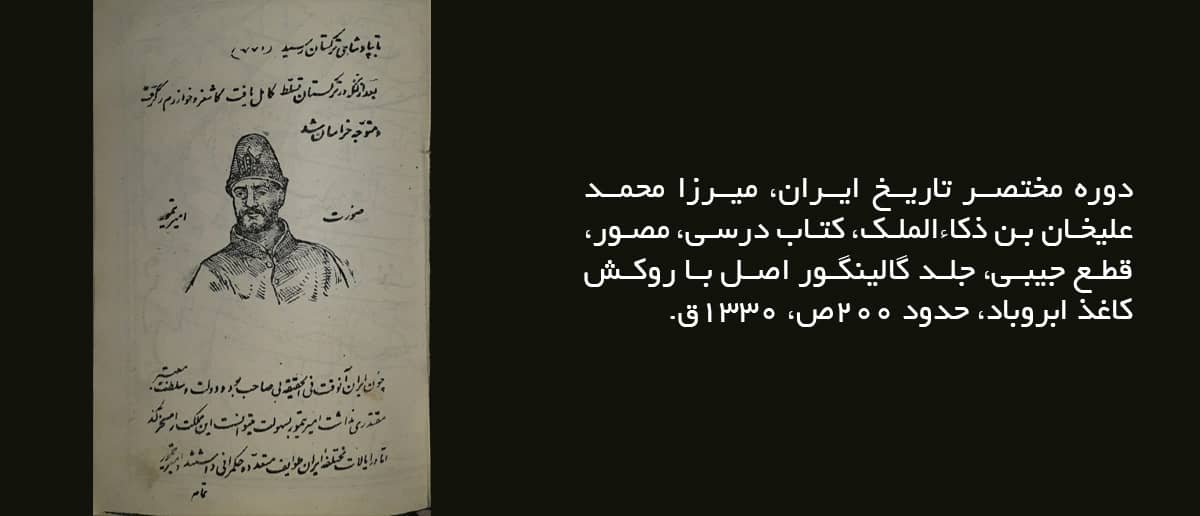 تا بپادشاهی ترکستان رسید (۷۷۱)
بعد از آنکه در ترکستان تسلط کامل یافت کاشغر و خوارزم را گرفت
و متوجه خراسان شد
صورت امیر تیمور
چون ایران آنوقت فی الحقیقه بی صاحب بود و دولت و سلطنت معتبر
مقتدری نداشت امیر تیمور بسهولت میتوانست این مملکت را مسخر کند
اما در ایالات مختلفه ایران طوایف متعدده حکمرانی داشتند و امیر تیمور
تمام
دوره مختصر تاریخ ایران، میرزا محمد
علیخان بن ذکاءالملک، کتاب درسی، مصور،
قطع جیبی، جلد گالینگور اصل با روکش
کاغذ ابروباد، حدود ۲۰۰ص، ۱۳۳۰ق.